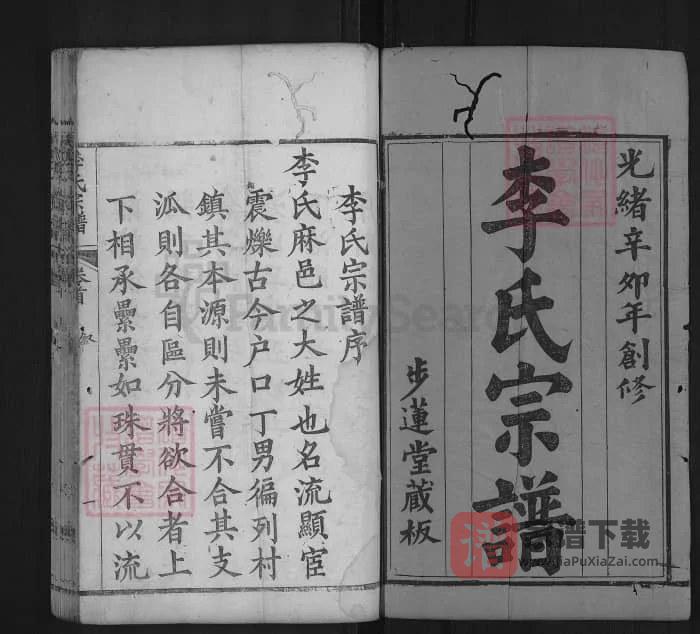 光緒辛卯年創修
李氏宗譜
步蓮堂藏板
李氏宗譜序
李氏麻邑之大姓也名流顯宦
震爍古今户口丁男徧列村
鎮其本源則未嘗不合其支
泒則各自區分將欲合者上
下相承纍纍如珠貫不以流
李氏宗譜 卷首 序
FamilySearch
谱下载
JiaPuXiaZai.com